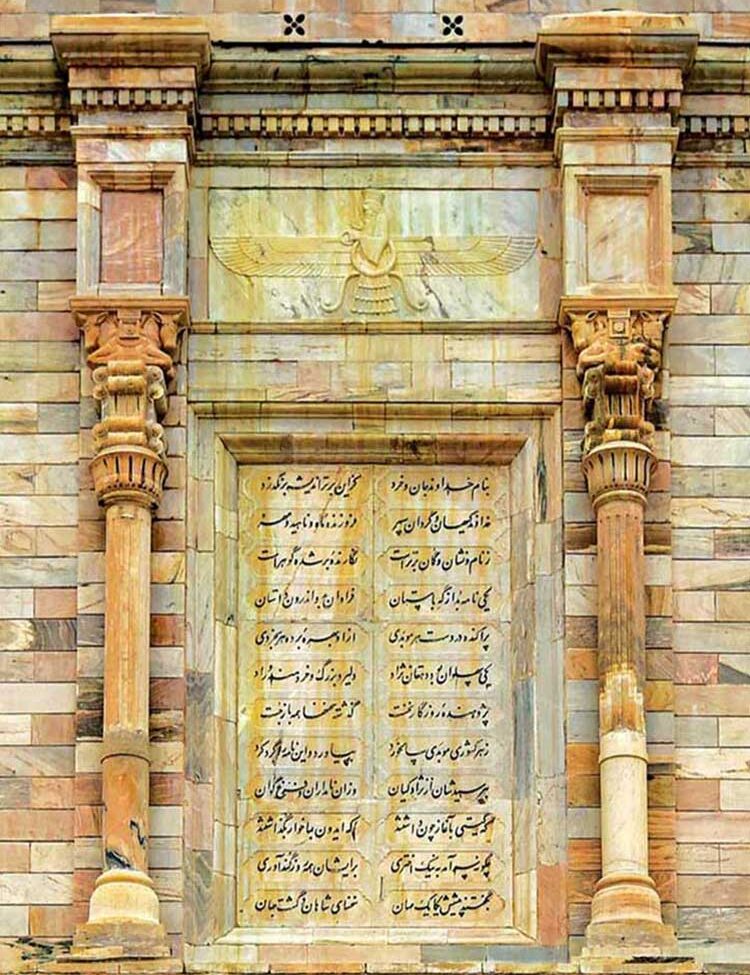 بنام خداوند جان و خرد کزین برتر اندیشه برنگذرد
خداوند کیهان و گردان سپهر فروزنده ماه و ناهید و مهر
ز نام و نشان و گمان برتر است نگارنده بر شده گوهر است
یکی نامه بد از گه باستان فراوان بدو اندرون داستان
پراکنده در دست هر موبدی ازو بهره برده هر بخردی
یکی پهلوان بود دهقان نژاد دلیر و بزرگ و خردمند و راد
پژوهنده روزگار نخست گذشته سخنها همه باز جست
ز هر کشوری موبدی سالخورد بیاورد و این نامه را گرد کرد
بپرسیدشان از نژاد کیان وزان نامداران فرخ گوان
که گیتی بآغاز چون داشتند که ایدون بما خوار بگذاشتند
چگونه سرآمد به نیک اختری برایشان همه روز گندآوری
بگفتند پیشش یکایک مهان سخنهای شاهان و گشت جهان